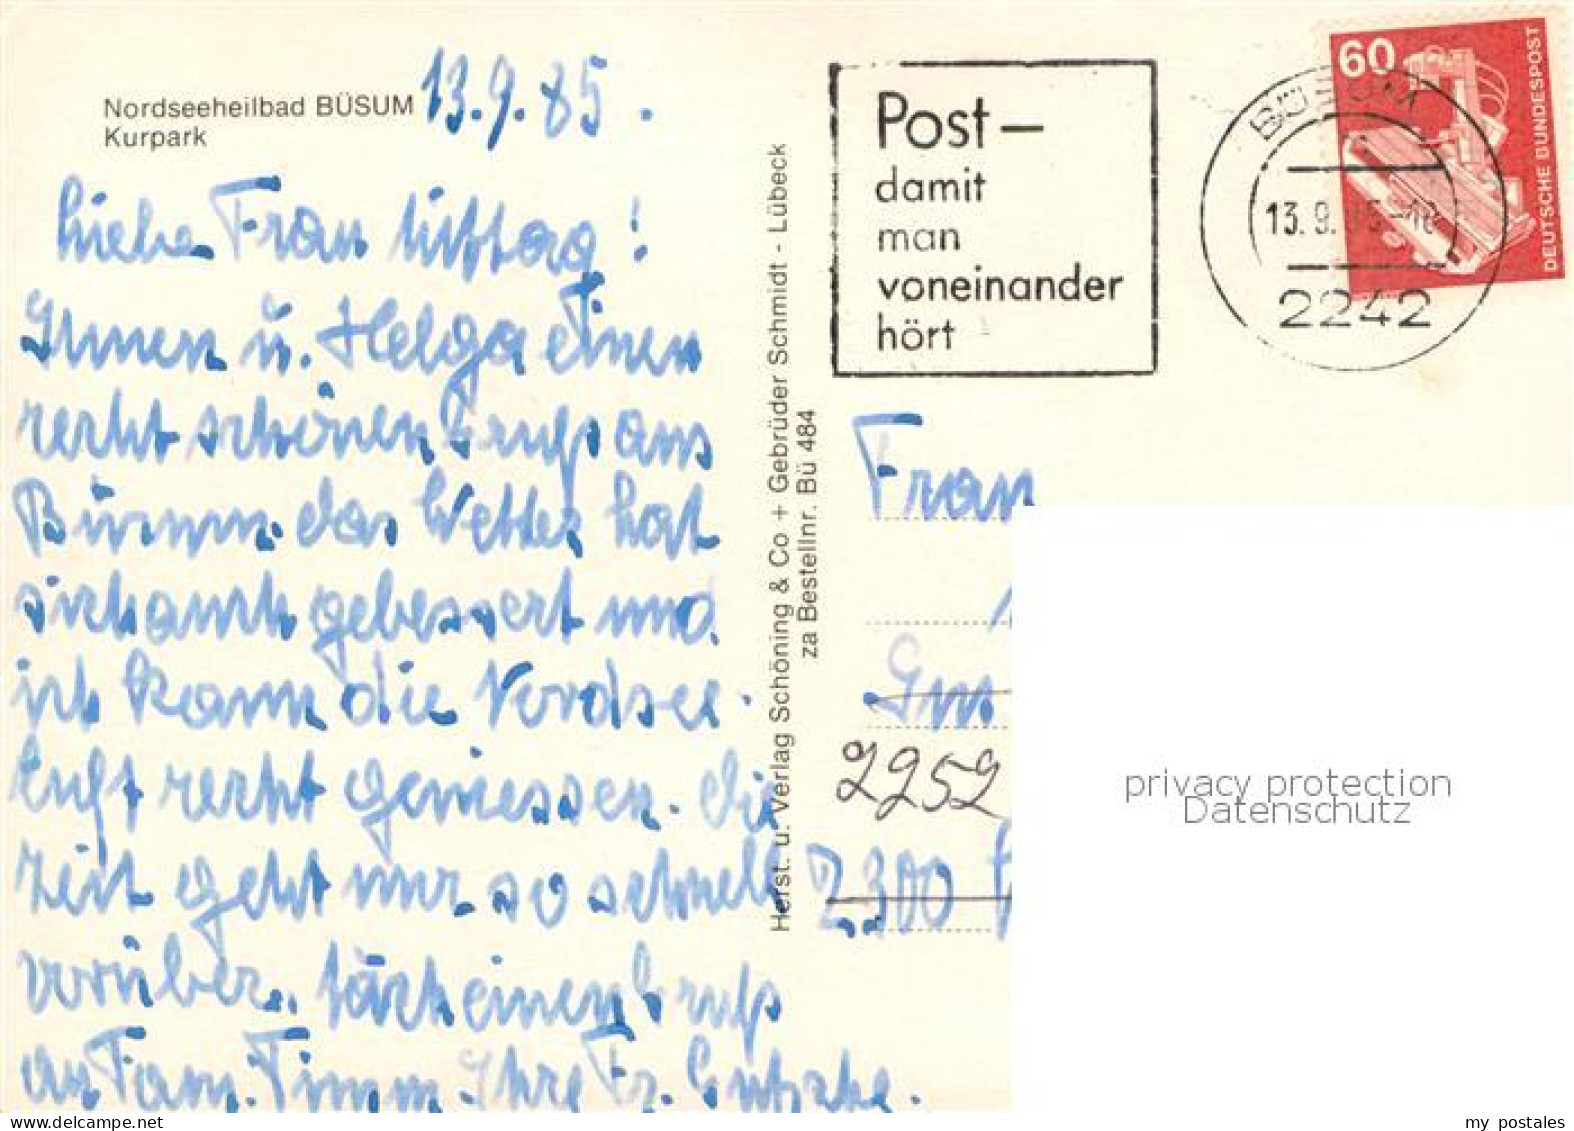 Nordseeheilbad BÜSUM
Kurpark
13.9.85.
Liebe Frau
Ihnen u. Helga einen
recht schönen Gruß aus
Büsum. das Wetter hat
sich auch gebessert und
ich kann die Nordsee-
luft recht geniessen. die
Zeit geht nur so schnell
vorüber. einen Gruß
an Fam. Timm. Ihre Fr.
Horst. u. Verlag Schöning & Co + Gebrüder Schmidt - Lübeck
za Bestellnr. Bü 484
Post –
damit
man
voneinander
hört
BÜSUM
13.9.85-18
2242
60
DEUTSCHE BUNDESPOST
Frau
2252
2300
privacy protection
Datenschutz
www.ansichtskartenversand.com
my postales